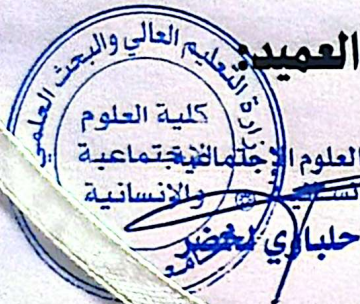 العميد:
وزارة التعليم العالي والبحث العلمي
كلية العلوم
الاجتماعية
والإنسانية
العلوم الاجتماعية
حلباوي لخضر